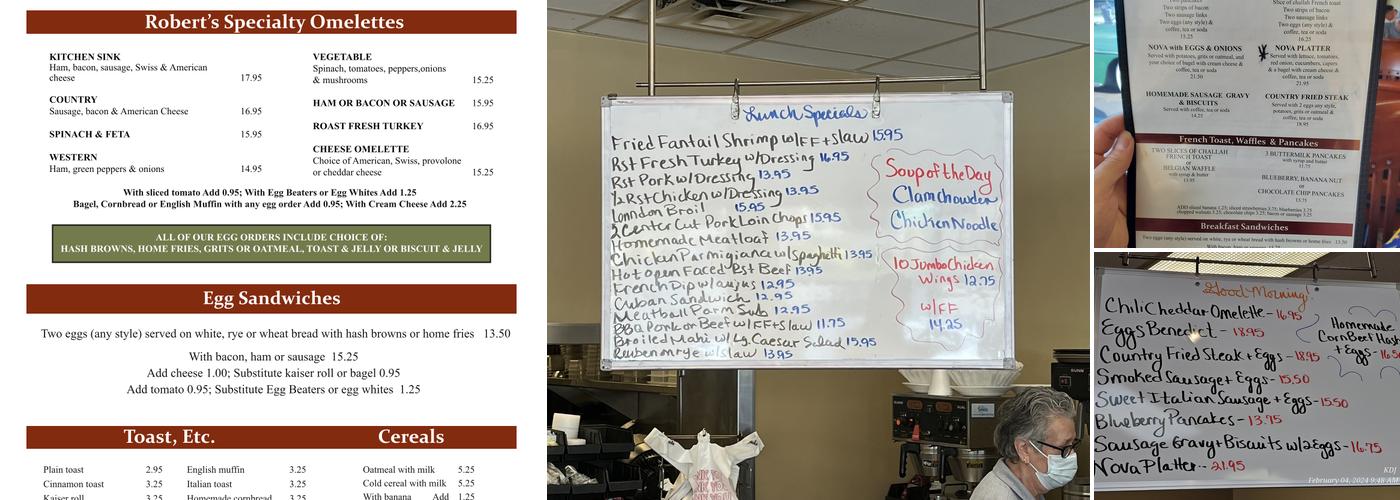 Robert's Specialty Omelettes
KITCHEN SINK
Ham, bacon, sausage, Swiss & American
cheese 17.95
COUNTRY
Sausage, bacon & American Cheese 16.95
SPINACH & FETA 15.95
WESTERN
Ham, green peppers & onions 14.95
VEGETABLE
Spinach, tomatoes, peppers,onions
& mushrooms 15.25
HAM OR BACON OR SAUSAGE 15.95
ROAST FRESH TURKEY 16.95
CHEESE OMELETTE
Choice of American, Swiss, provolone
or cheddar cheese 15.25
With sliced tomato Add 0.95; With Egg Beaters or Egg Whites Add 1.25
Bagel, Cornbread or English Muffin with any egg order Add 0.95; With Cream Cheese Add 2.25
ALL OF OUR EGG ORDERS INCLUDE CHOICE OF:
HASH BROWNS, HOME FRIES, GRITS OR OATMEAL, TOAST & JELLY OR BISCUIT & JELLY
Egg Sandwiches
Two eggs (any style) served on white, rye or wheat bread with hash browns or home fries 13.50
With bacon, ham or sausage 15.25
Add cheese 1.00; Substitute kaiser roll or bagel 0.95
Add tomato 0.95; Substitute Egg Beaters or egg whites 1.25
Toast, Etc.
Plain toast 2.95
Cinnamon toast 3.25
Kaiser roll 3.25
English muffin 3.25
Italian toast 3.25
Homemade cornbread 3.25
Cereals
Oatmeal with milk 5.25
Cold cereal with milk 5.25
With banana Add 1.25
Lunch Specials
Fried Fantail Shrimp w/FF+slaw 15.95
Rst Fresh Turkey w/Dressing 16.95
Rst Pork w/Dressing 13.95
1/2 Rst Chicken w/Dressing 13.95
Lonndon Broil 15.95
2 Center Cut Pork Loin Chops 15.95
Homemade Meatloaf 13.95
Chicken Parmigiana w/spaghetti 13.95
Hot open Faced Rst Beef 13.95
French Dip w/aujus 12.95
Cuban Sandwich 12.95
Meatball Parm Sub 12.95
BBQ Pork or Beef w/FF+slaw 11.75
Broiled Mahi w/ Lg. Caesar Salad 15.95
Reuben on rye w/slaw 13.95
Soup of the Day
Clam Chowder
Chicken Noodle
10 Jumbo Chicken
Wings 12.75
w/FF
14.25
Two strips of bacon
Two sausage links
Two eggs (any style) &
coffee, tea or soda
15.25
Slice of challah French toast
Two strips of bacon
Two sausage links
Two eggs (any style) &
coffee, tea or soda
16.25
NOVA with EGGS & ONIONS
Served with potatoes, grits or oatmeal, and
your choice of bagel with cream cheese &
coffee, tea or soda
21.50
NOVA PLATTER
Served with lettuce, tomatoes,
red onion, cucumbers, capers
& a bagel with cream cheese &
coffee, tea or soda
21.95
HOMEMADE SAUSAGE GRAVY
& BISCUITS
Served with coffee, tea or soda
14.25
COUNTRY FRIED STEAK
Served with 2 eggs any style,
potatoes, grits or oatmeal &
coffee, tea or soda
18.95
French Toast, Waffles & Pancakes
TWO SLICES OF CHALLAH
FRENCH TOAST
or
BELGIAN WAFFLE
with syrup & butter
13.95
3 BUTTERMILK PANCAKES
with syrup and butter
11.75
BLUEBERRY, BANANA NUT
or
CHOCOLATE CHIP PANCAKES
13.75
ADD sliced banana 1.25; sliced strawberries 3.75; blueberries 3.75
chopped walnuts 3.25; chocolate chips 3.25; bacon or sausage 3.25
Breakfast Sandwiches
Two eggs (any style) served on white, rye or wheat bread with hash browns or home fries 13.50
Good Morning!
Chili Cheddar Omelette - 16.95
Eggs Benedict - 18.95
Country Fried Steak + Eggs - 18.95
Smoked Sausage + Eggs - 15.50
Sweet Italian Sausage + Eggs - 15.50
Blueberry Pancakes - 13.75
Sausage Gravy + Biscuits w/2 Eggs - 16.75
Nova Platter - 21.95
Homemade
Corn Beef Hash
+ Eggs -
KDJ
February 04, 2024 9:48 A